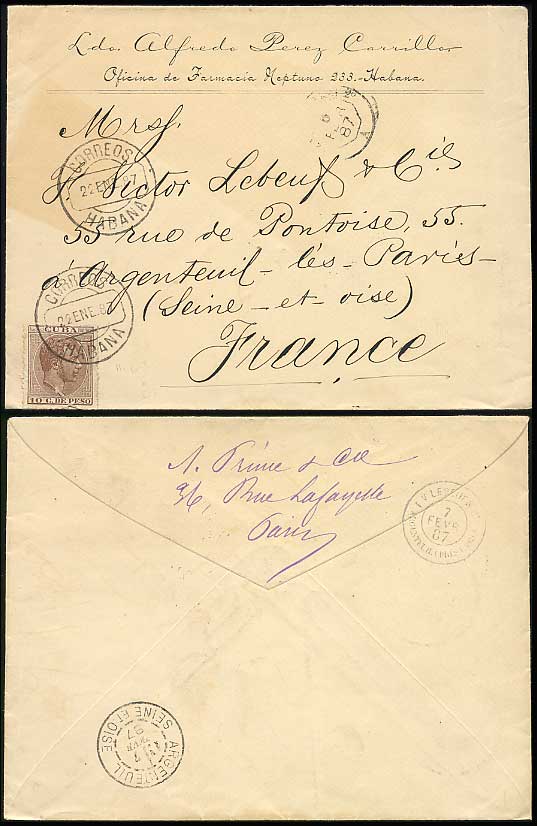 Ldo. Alfredo Perez Carrillo.
Oficina de Farmacia Neptuno 233.-Habana.
6
87
A
Mrs.
CORREOS
22 ENE 87
HABANA
Victor Lebeuf & Cie
55 rue de Pontoise, 55.
à Argenteuil-lès-Paris-
(Seine-et-oise)
France
CORREOS
22 ENE. 87
HABANA
CUBA
10 C. DE PESO
36, Rue Lafayette
Paris
7
FEVR
87
ARGENTEUIL
SEINE ET OISE
7
87